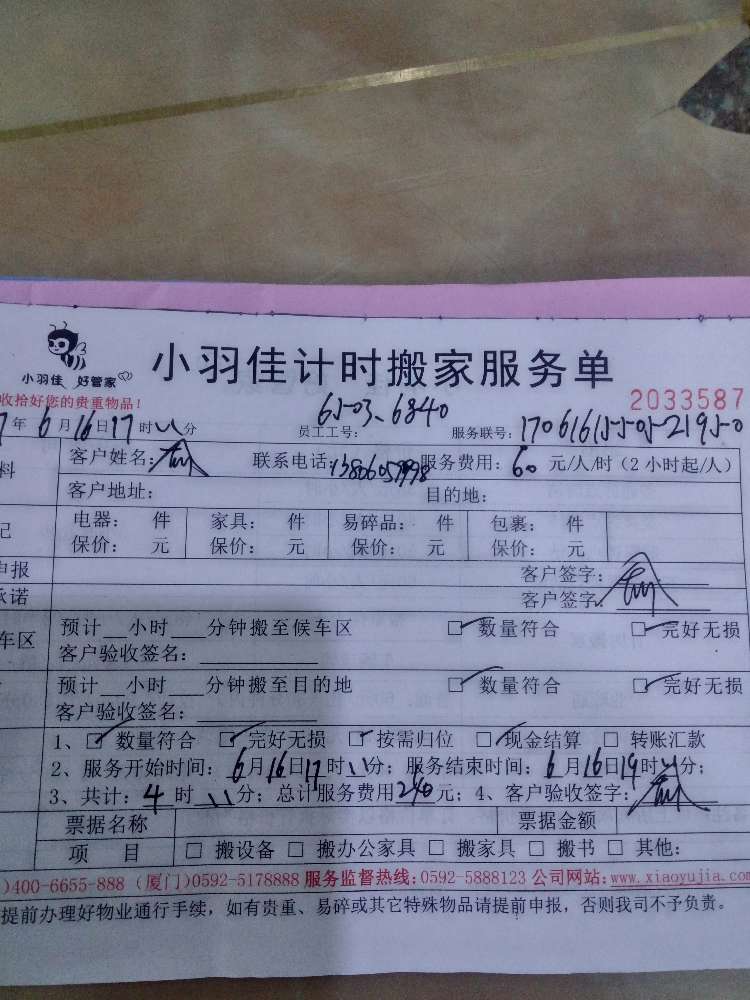 小羽佳 好管家
小羽佳计时搬家服务单
收拾好您的贵重物品!
2033587
7年6月16日17时 分 员工工号: 6503、6840 服务联号:
料 客户姓名: 联系电话: 服务费用: 60 元/人/时(2小时起/人)
客户地址: 目的地:
记 电器: 件 家具: 件 易碎品: 件 包裹: 件
保价: 元 保价: 元 保价: 元 保价: 元
申报 客户签字:
承诺 客户签字:
车区 预计__小时___分钟搬至候车区 □数量符合 □完好无损
客户验收签名:
预计__小时___分钟搬至目的地 □数量符合 □完好无损
客户验收签名:
1、□数量符合 □完好无损 □按需归位 □现金结算 □转账汇款
2、服务开始时间: 6月16日17时 分; 服务结束时间: 6月16日19时 分;
3、共计: 4时 分; 总计服务费用240元; 4、客户验收签字:
票据名称 票据金额
项 目 □ 搬设备 □ 搬办公家具 □ 搬家具 □ 搬书 □ 其他:
)400-6655-888 (厦门)0592-5178888 服务监督热线:0592-5888123 公司网站:www.xiaoyujia.com
提前办理好物业通行手续,如有贵重、易碎或其它特殊物品请提前申报,否则我司不予负责。